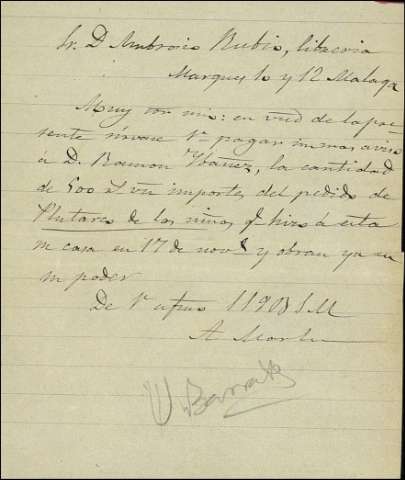 Sr. D Ambrosio Rubio, libreria
Marques 10 y 12 Malaga
Muy Sor mio: en vrtd de la pre
sente sirvase Vd pagar sin mas aviso
á D. Ramon Ybañez, la cantidad
de 500 vn importe del pedido de
Plutarco de las niñas q hizo á esta
m casa en 17 de nov y obran ya en
m poder
De V atmo S S Q B S M
A